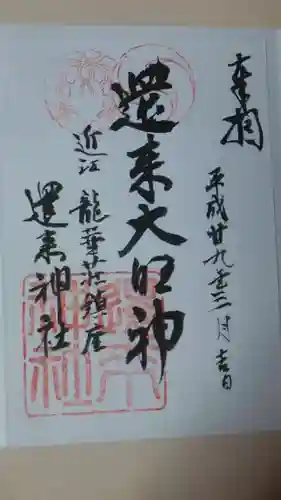 奉拝
平成廿九年三月吉日
還来大明神
近江 龍華荘鎮座
還来神社